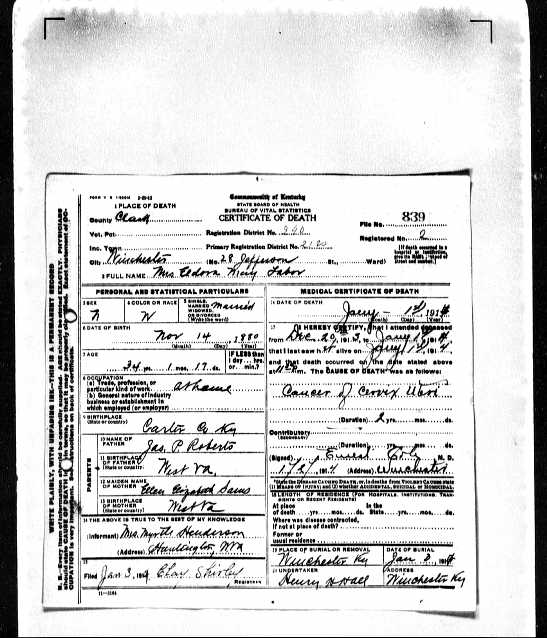 Commonwealth of Kentucky
STATE BOARD OF HEALTH
BUREAU OF VITAL STATISTICS
CERTIFICATE OF DEATH
1 PLACE OF DEATH
County Clark
Vot. Pct.
Registration District No.
File No. 839
Inc. Town
Primary Registration District No.
Registered No. 2
City Winchester (No. 28 Jefferson St., Ward)
[If death occurred in a hospital or institution, give its NAME instead of street and number.]
2 FULL NAME Mrs. Eldora Tabor
PERSONAL AND STATISTICAL PARTICULARS
3 SEX
4 COLOR OR RACE W
5 SINGLE, MARRIED, WIDOWED, OR DIVORCED (Write the word) Married
6 DATE OF BIRTH
Nov 14 , 1880
(Month) (Day) (Year)
7 AGE
34 yrs. 1 mos. 17 ds.
IF LESS than 1 day... hrs. or... min.?
8 OCCUPATION
(a) Trade, profession, or particular kind of work at home
(b) General nature of industry business or establishment in which employed (or employer)
9 BIRTHPLACE
(State or country) Carter Co Ky
PARENTS
10 NAME OF FATHER Jas. P Roberts
11 BIRTHPLACE OF FATHER (State or country) West Va.
12 MAIDEN NAME OF MOTHER Ellen Elizabeth
13 BIRTHPLACE OF MOTHER (State or country) West Va
14 THE ABOVE IS TRUE TO THE BEST OF MY KNOWLEDGE
(Informant) Mrs. Myrtle Henderson
(Address) Huntington, W Va
15
Filed Jan 3, 1914 Registrar
11—3184
MEDICAL CERTIFICATE OF DEATH
16 DATE OF DEATH
Jany 1st 1914
(Month) (Day) (Year)
17 I HEREBY CERTIFY, that I attended deceased
from Dec 20, 1913, to Jany 1st 1914
that I last saw h alive on Jany 1st, 1914
and that death occurred on the date stated above
at m. The CAUSE OF DEATH* was as follows:
Cancer of Cervix
(Duration) 2 yrs. mos. ds.
Contributory
(SECONDARY)
(Duration) yrs. mos. ds.
(Signed) Ernest Cole, M. D.
1/2/ 1914 (Address) Winchester
*State the DISEASE CAUSING DEATH, or, in deaths from VIOLENT CAUSES state (1) MEANS OF INJURY; and (2) whether ACCIDENTAL, SUICIDAL or HOMICIDAL.
18 LENGTH OF RESIDENCE (FOR HOSPITALS, INSTITUTIONS, TRANSIENTS OR RECENT RESIDENTS)
At place of death yrs. mos. ds. In the State yrs. mos. ds.
Where was disease contracted, if not at place of death?
Former or usual residence
19 PLACE OF BURIAL OR REMOVAL Winchester Ky
DATE OF BURIAL Jan 3, 1914
20 UNDERTAKER Henry Hall
ADDRESS Winchester Ky